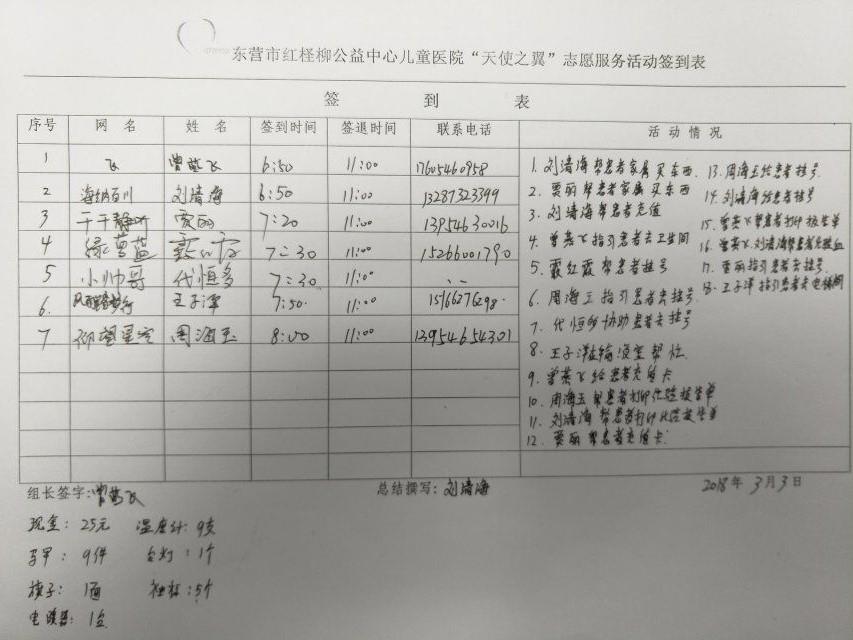 东营市红柽柳公益中心儿童医院“天使之翼”志愿服务活动签到表
签 到 表
序号 网 名 姓 名 签到时间 签退时间 联系电话 活 动 情 况
1 飞 曾燕飞 6:50 11:00 17605460958
2 海纳百川 刘清海 6:50 11:00 13287323399
3 干干静听 贾丽 7:20 11:00 13954630016
4 绿莹蓝 7:30 11:00 15266001790
5 小帅哥 代恒多 7:30 11:0° --
6. 王子洋 7:50. 11:00 15166276298.
7 仰望星空 周海玉 8:00 11:00 13954654301
1. 刘清海帮患者家属买东西
2. 贾丽帮患者家属买东西
3. 刘清海帮患者充值
4. 曾燕飞指引患者去卫生间
5. 聂红霞帮患者挂号
6. 周海玉指引患者去挂号
7. 代恒多协助患者去挂号
8. 王子洋去输液室帮忙
9. 曾燕飞给患者充值卡
10. 周海玉帮患者打印化验报告单
11. 刘清海帮患者打印化验报告单
12. 贾丽帮患者充值卡.
13. 周海玉给患者挂号
14. 刘清海给患者挂号
15. 曾燕飞帮患者打印报告单
16. 曾燕飞.刘清海帮患者
17. 贾丽指引患者去挂号.
18. 王子洋指引患者去电梯间
组长签字:曾燕飞 总结撰写:刘清海 2018年3月3日
现金: 25元 温度计: 9支
马甲: 9件 台灯: 1个
旗子: 1面 :5个
电暖器: 1台